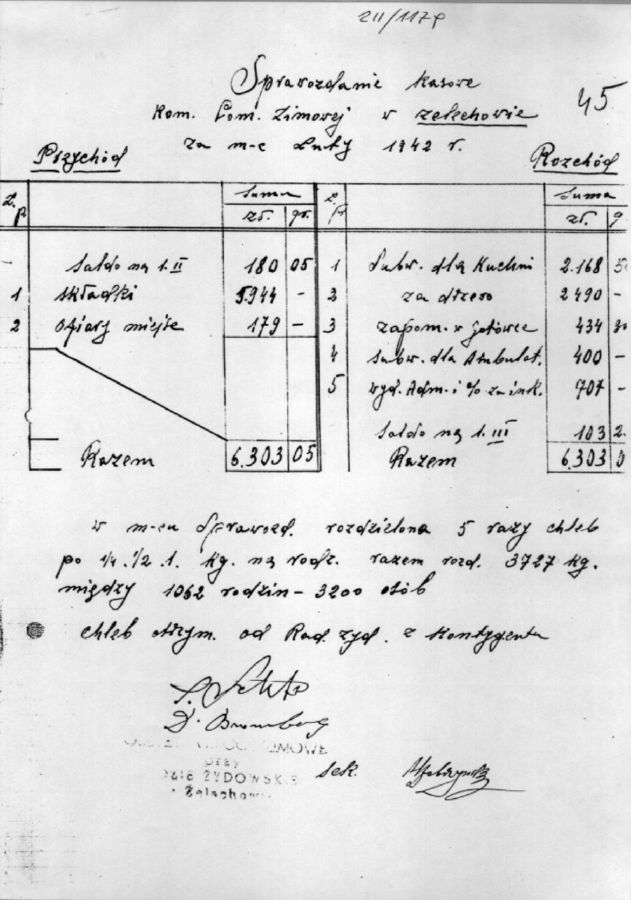 211/1179
45
Sprawozdanie Kasowe
Kom. Pom. Zimowej w Żelechowie
za m-c Luty 1942 r.
Przychód Rozchód
L.p. Suma L.p. Suma
zł. gr. zł. g
Saldo na 1.II 180 05 1 Subw. dla Kuchni 2.168 50
1 Składki 5.944 — 2 za drzewo 2490 —
2 Ofiary miejsc 179 — 3 zapom. w gotówce 434 30
4 Subw. dla Ambulat. 400 —
5 wyd. Adm. i % za ink. 707 —
Saldo na 1.III 103 2
Razem 6.303 05 Razem 6.303 0
w m-cu Sprawozd. rozdzielono 5 razy chleb
po 1/4. 1/2 1. kg. na rodz. razem rozd. 3727 kg.
między 1062 rodzin — 3200 osób
chleb otrzym. od Rad. żyd. z Kontyngentu
D. Bromberg
ZIMOWE
przy
ŻYDOWSKIE
Sek.